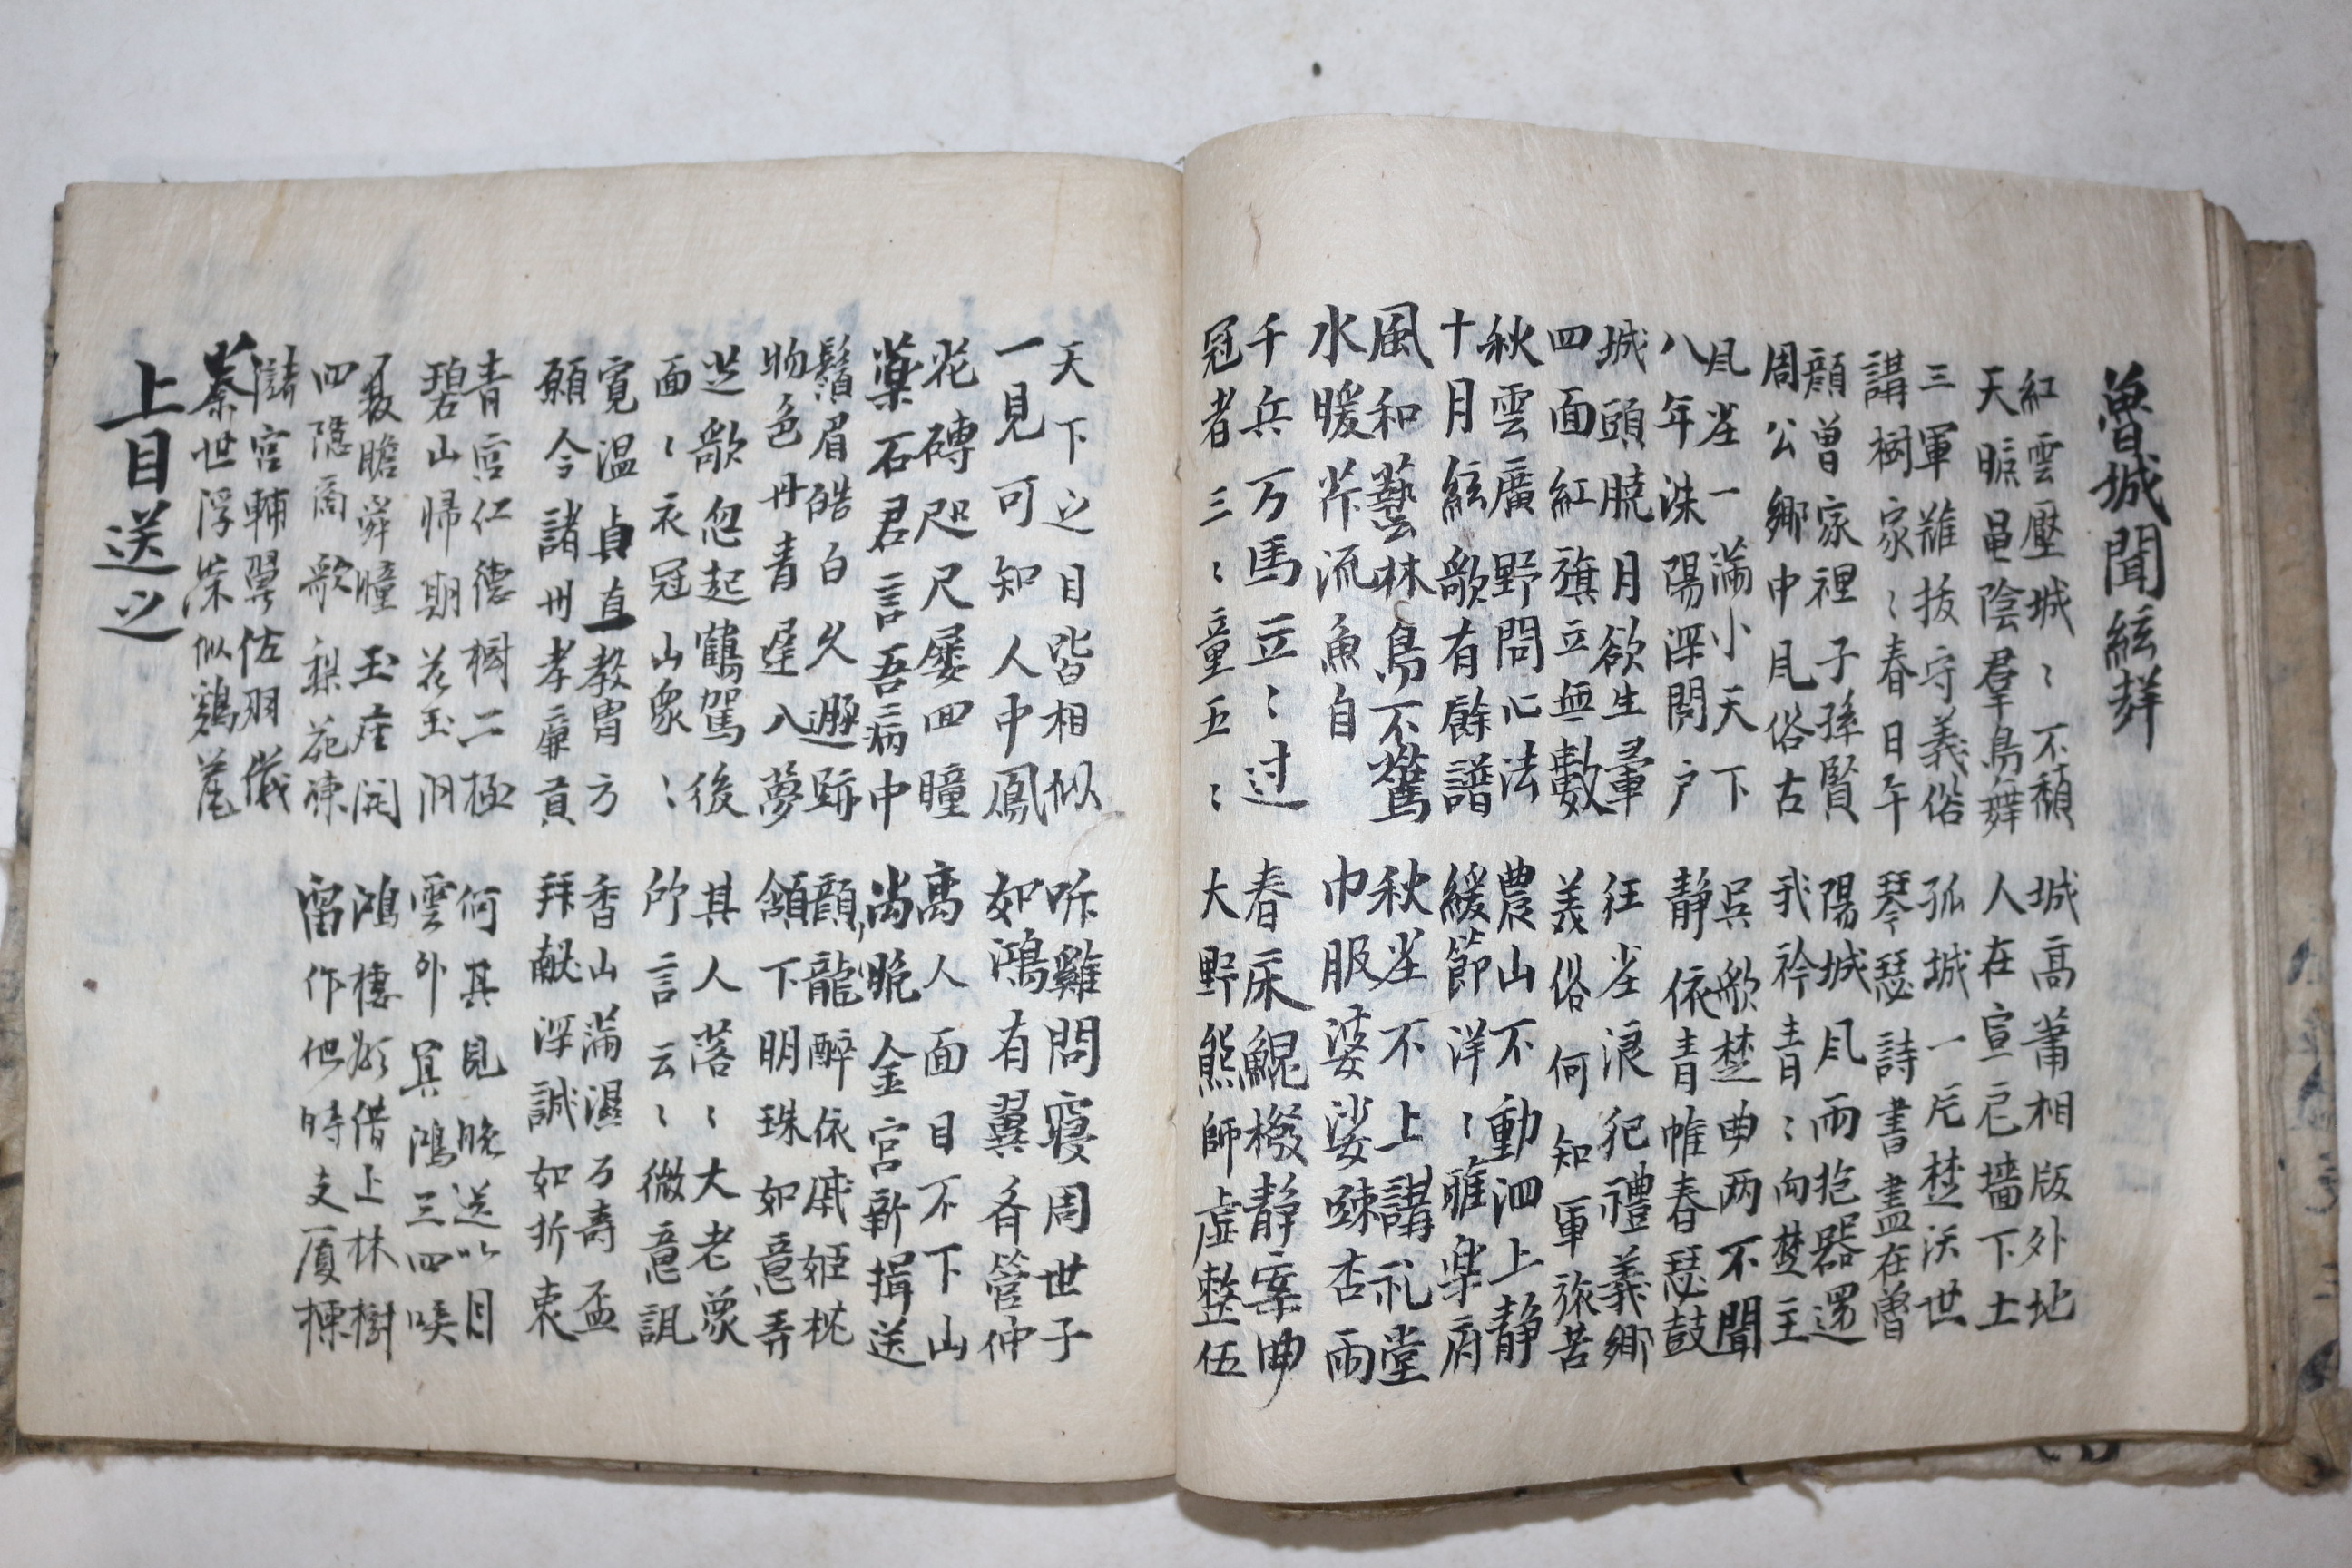 魯城聞絃
紅雲壓城〻不頹 城高簫相版外地
天陰羣鳥舞 人在宣尼墻下土
三軍離拔守義俗 孤城一片楚沃世
講樹家〻春日午 琴瑟詩書盡在魯
顔曽家裡子孫賢 陽城凨雨抱器還
周公鄉中凨俗古 我衿青〻向楚主
凨一滿小天下 吳歌楚曲两不聞
八年洙陽深閉户 靜依青帷春瑟鼓
城頭曉月欲生暈 狂浪犯禮義鄉
四面紅旗立無數 義俗何知軍旅苦
秋雲廣野問心法 農山不動泗上靜
十月絃歌有餘譜 緩節洋〻雅樂府
風和藝林鳥不驚 秋不上講礼堂
水暖芹流魚自 巾服婆娑踈杏雨
千兵万馬立〻过 春床鯤撥靜案曲
冠者三〻童五〻 大野熊師虛整伍
天下之目皆相似 昕雞問寢周世子
一見可知人中鳳 如鴻有翼斉管仲
花磚咫尺屡回瞳 髙人面目不下山
藥石君言吾病中 尚晩金宮新揖送
鬚眉皓白久遯跡 顔龍醉依戚姫枕
物色丹青遅入夢 頷下明珠如意弄
芝歌忽起鶴駕後 其人落〻大老衆
面〻衣冠山象〻 所言云〻微意諷
寛温貞直教胄方 香山滿濕万壽盃
願令諸州孝廉貢 拜献深誠如折束
青宮仁德樹二極 何其見晩送以目
碧山帰期花玉洞 雲外冥鴻三四唉
瞻舜瞳玉座 鴻棲影借上林樹
四隠商歌梨花凍 留作他時支厦棟
儲宮輔翼佐羽儀
秦世浮荣似鷄
上目送之